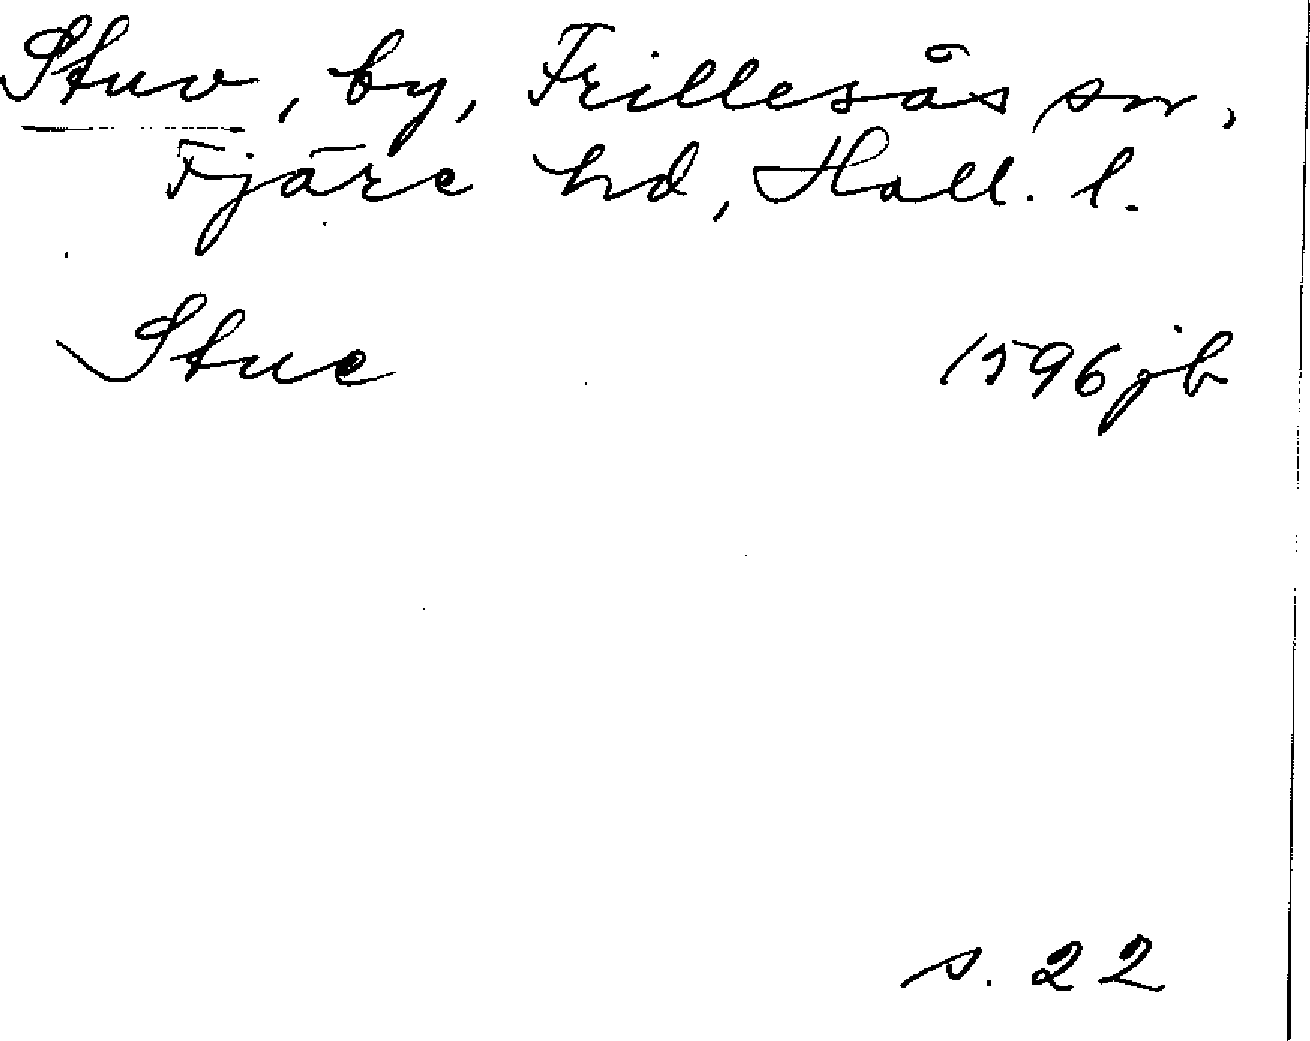 Stuv, by, Frillesås sn,
Fjäre hd, Hall. l.
Stue 1596 jb
s. 22